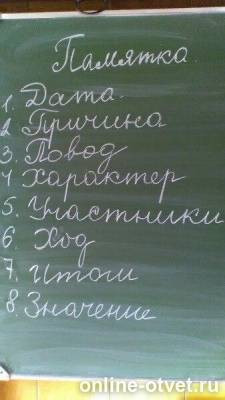 Памятка.
1. Дата.
2 Причина
3. Повод
4 Характер
5. Участники
6 Ход
7. Итоги
8. Значение
online-otvet.ru